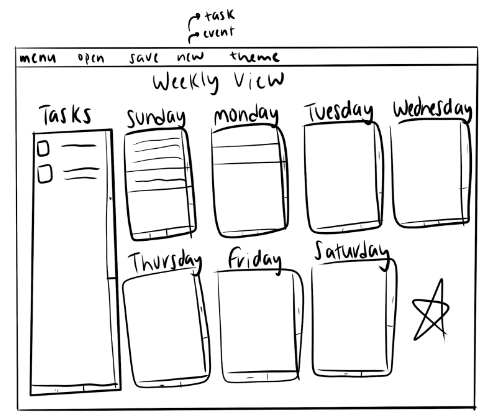 task
event
menu open save new theme
Weekly View
Tasks Sunday Monday Tuesday Wednesday
Thursday Friday Saturday